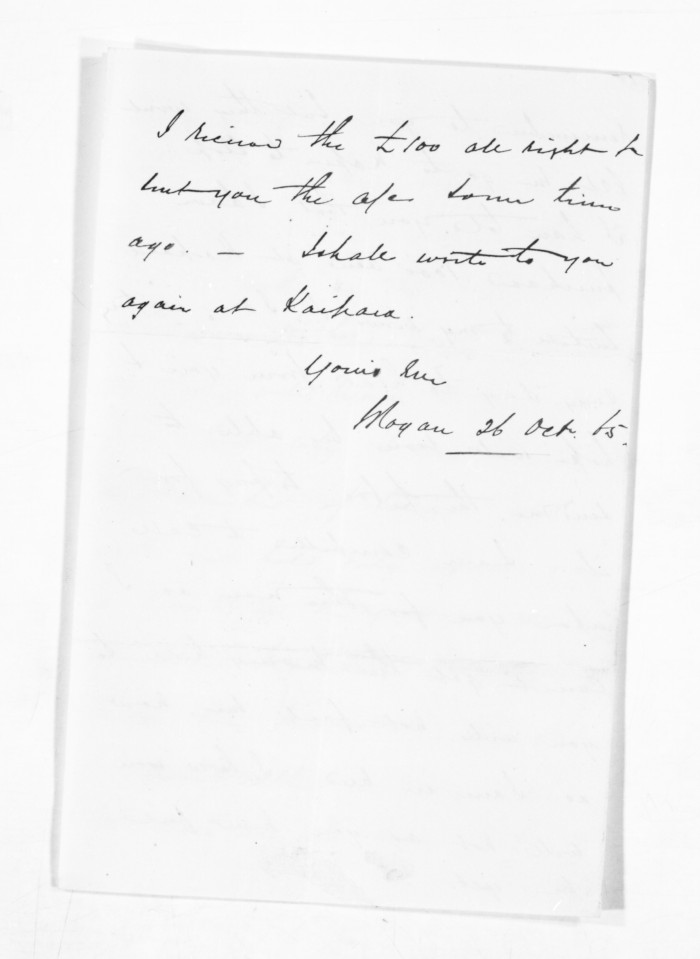 I recieved the £100 all right &
sent you the a/c some time
ago. — I shall write to you
again at Kaipara.
Yours
Mogau 26 Oct. 65.